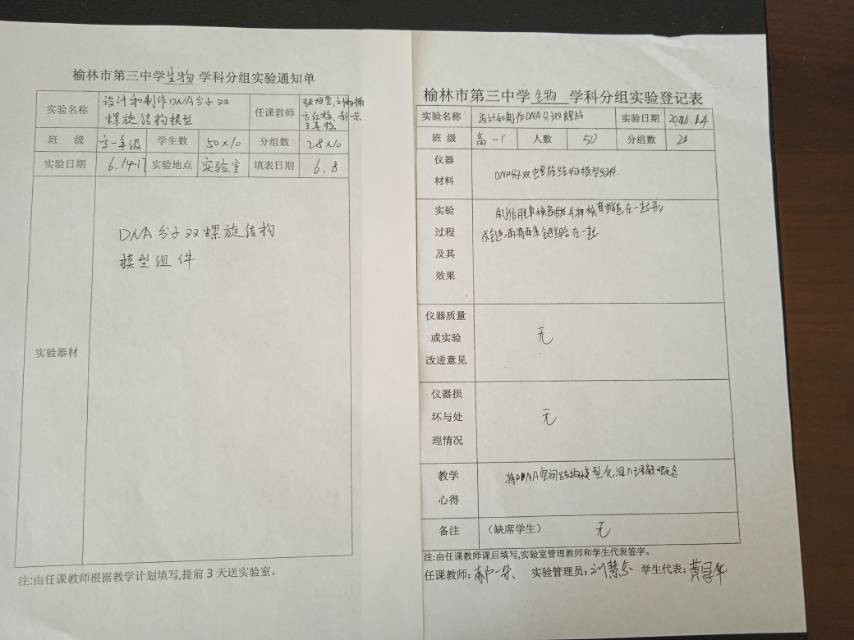 榆林市第三中学生物 学科分组实验通知单
实验名称 设计和制作DNA分子双螺旋结构模型 任课教师
班 级 高一年级 学生数 50×10 分组数 28×10
实验日期 6.14-17 实验地点 实验室 填表日期 6.8
实验器材
DNA分子双螺旋结构
模型组件
注:由任课教师根据教学计划填写,提前3天送实验室。
榆林市第三中学 生物 学科分组实验登记表
实验名称 设计和制作DNA分子双螺旋 实验日期
班 级 高一 人数 50 分组数 28
仪器
材料
DNA分子双螺旋结构模型组件
实验
过程
及其
效果
在一起
仪器质量
或实验
改进意见
无
仪器损
坏与处
理情况
无
教学
心得
将DNA空间结构模型化
备注 (缺席学生) 无
注:由任课教师课后填写,实验室管理教师和学生代表签字。
任课教师: 实验管理员: 学生代表: